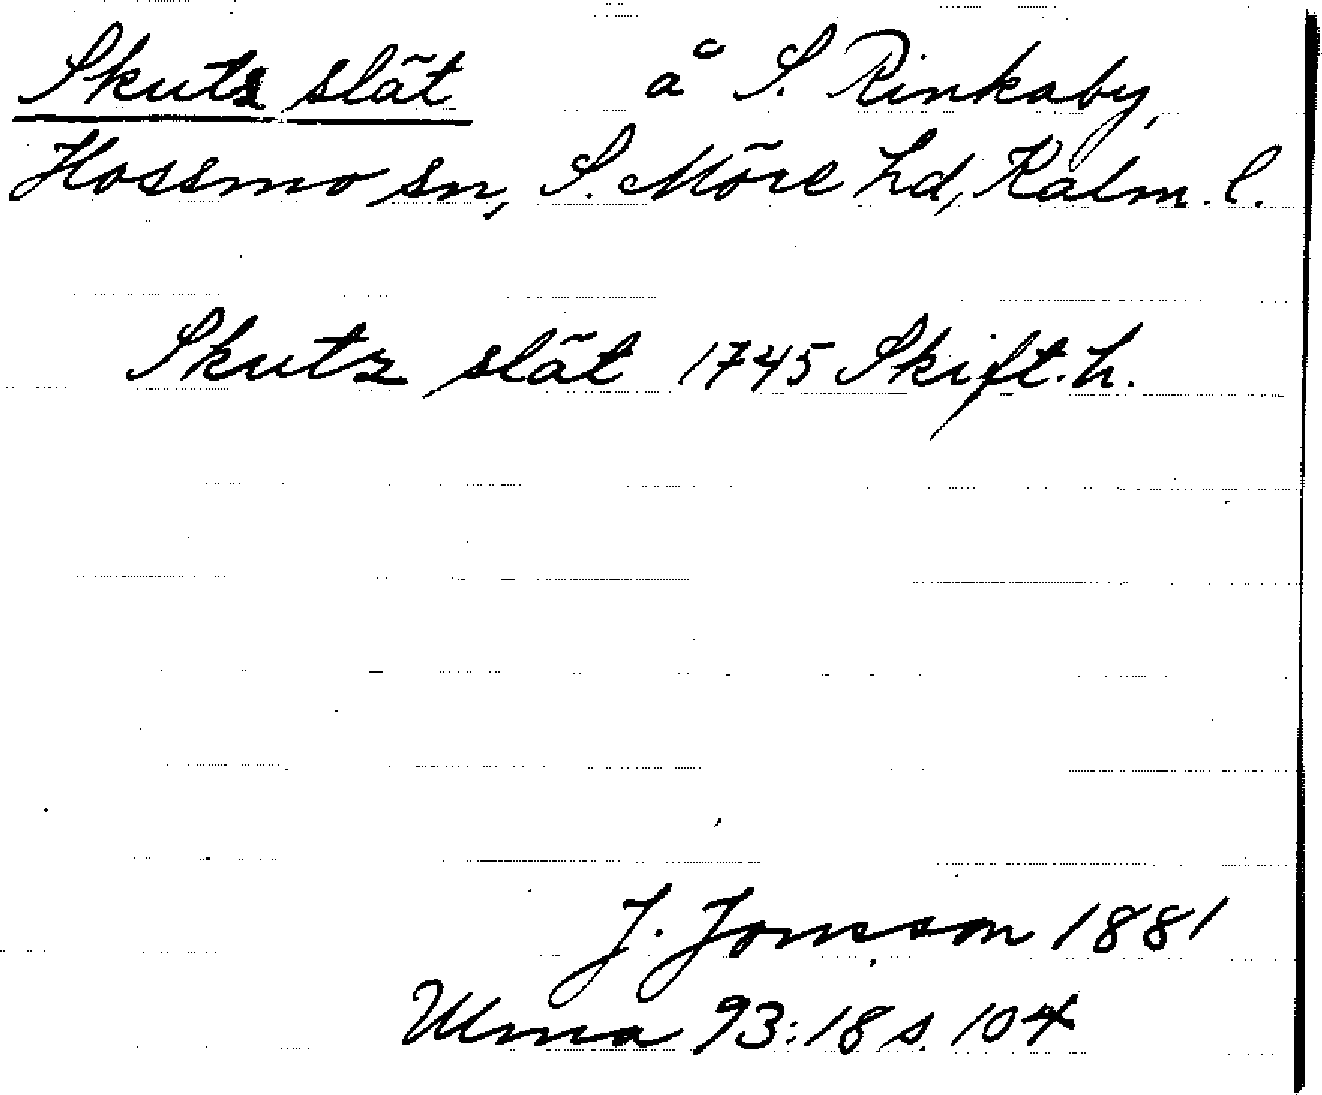 Skuts slät å S. Rinkaby,
Hossmo sn, S. Möre hd, Kalm. l.
Skutz slät 1745 Skift.h.
J. Jonsson 1881
Ulma 93:18 s. 104